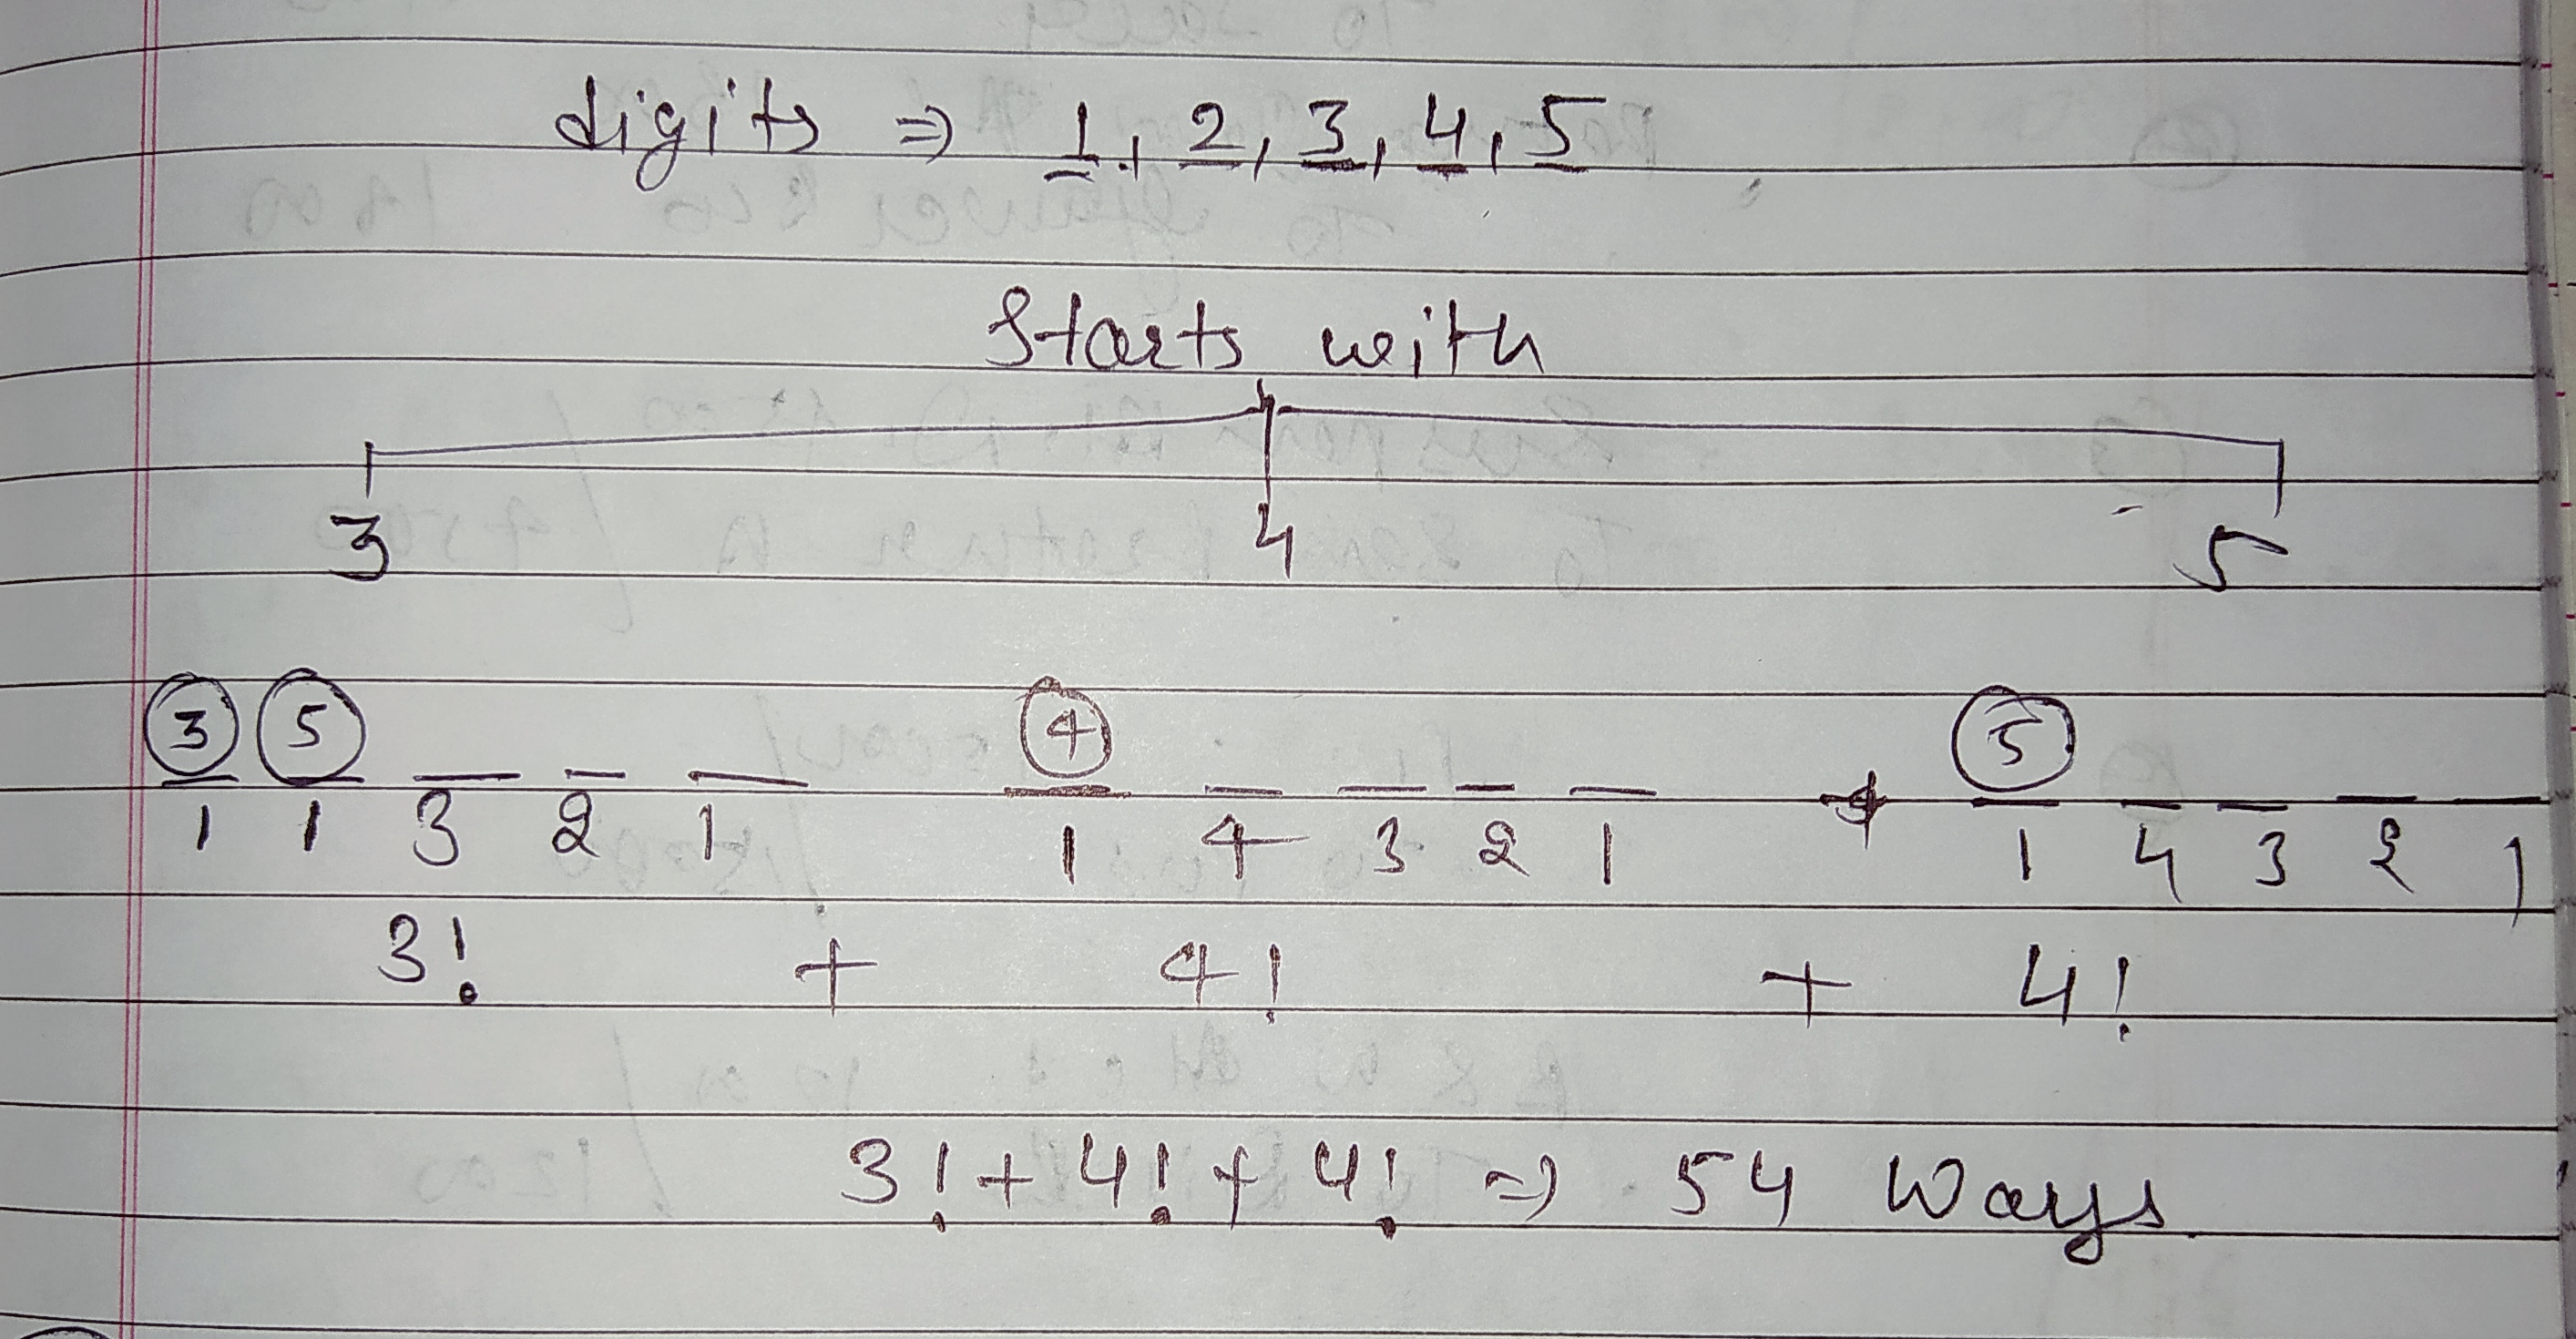 digits ⇒ 1, 2, 3, 4, 5
Starts with
3 4 5
3 5 4 5
1 1 3 2 1 1 4 3 2 1 + 1 4 3 2 1
3! + 4! + 4!
3! + 4! + 4! ⇒ 54 Ways